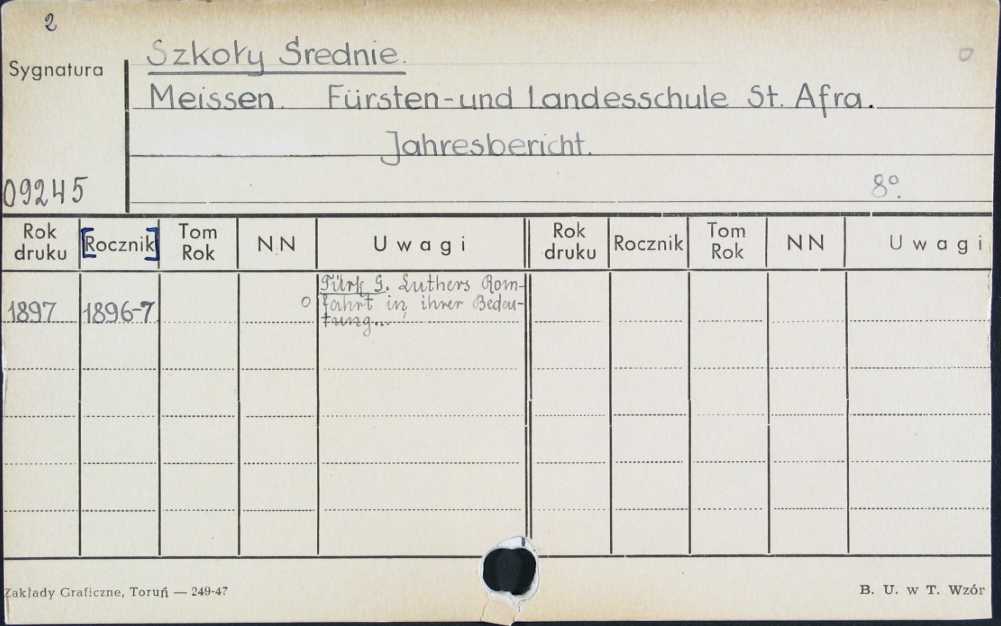 2
Szkoły Średnie.
Sygnatura
Meissen. Fürsten-und Landesschule St. Afra.
Jahresbericht.
09245
8º.
Rok druku [Rocznik] Tom Rok NN Uwagi Rok druku Rocznik Tom Rok NN Uwagi
Türk G. Luthers Rom-
1897 1896-7 0 fahrt in ihrer Bedeu-
tung...
Zakłady Graficzne, Toruń — 249-47
B. U. w T. Wzór